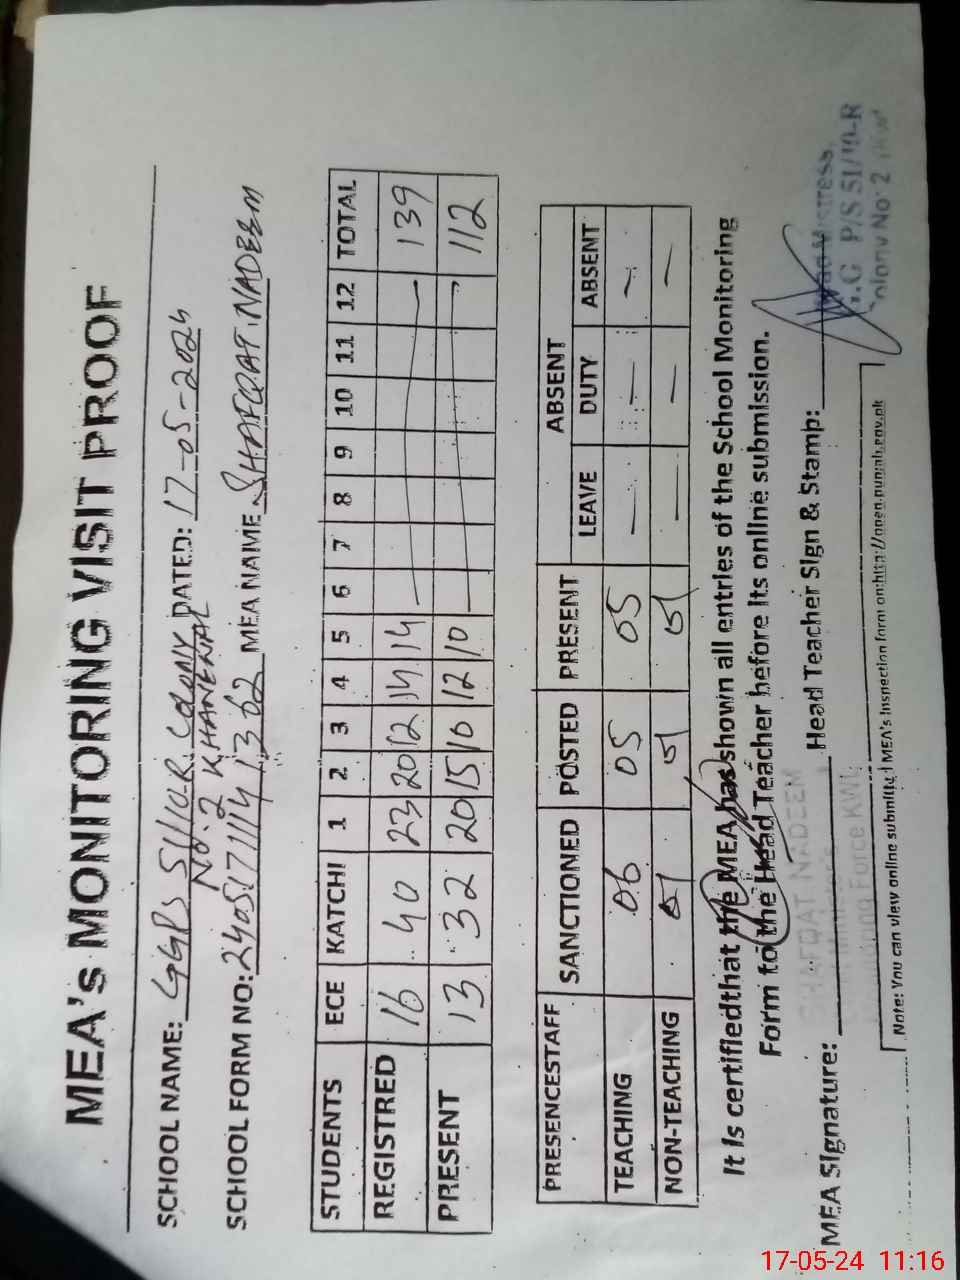 MEA's MONITORING VISIT PROOF
SCHOOL NAME: GGPS 51/10.R COLONY DATED: 17-05-2024
NO.2 KHANEWAL
SCHOOL FORM NO: MEA NAME SHAFQAT NADEEM
STUDENTS ECE KATCHI 1 2 3 4 5 6 7 8 9 10 11 12 TOTAL
REGISTRED 16 40 23 20 12 14 14 — 139
PRESENT 13 32 20 15 10 12 10 — 112
PRESENCESTAFF SANCTIONED POSTED PRESENT ABSENT
LEAVE DUTY ABSENT
TEACHING 06 05 05 — — —
NON-TEACHING 01 01 01 — — —
It Is certifiedthat the MEA has shown all entries of the School Monitoring
Form to the Head Teacher before Its online submission.
MEA Signature: Head Teacher Sign & Stamp:
SHAFQAT NADEEM
Monitoring Force KWL
Head Mistress
G.G P/S 51/10-R
Colony No: 2
Note: You can view online submitted MEA's Inspection form on:http://open.punjab.gov.pk
17-05-24 11:16